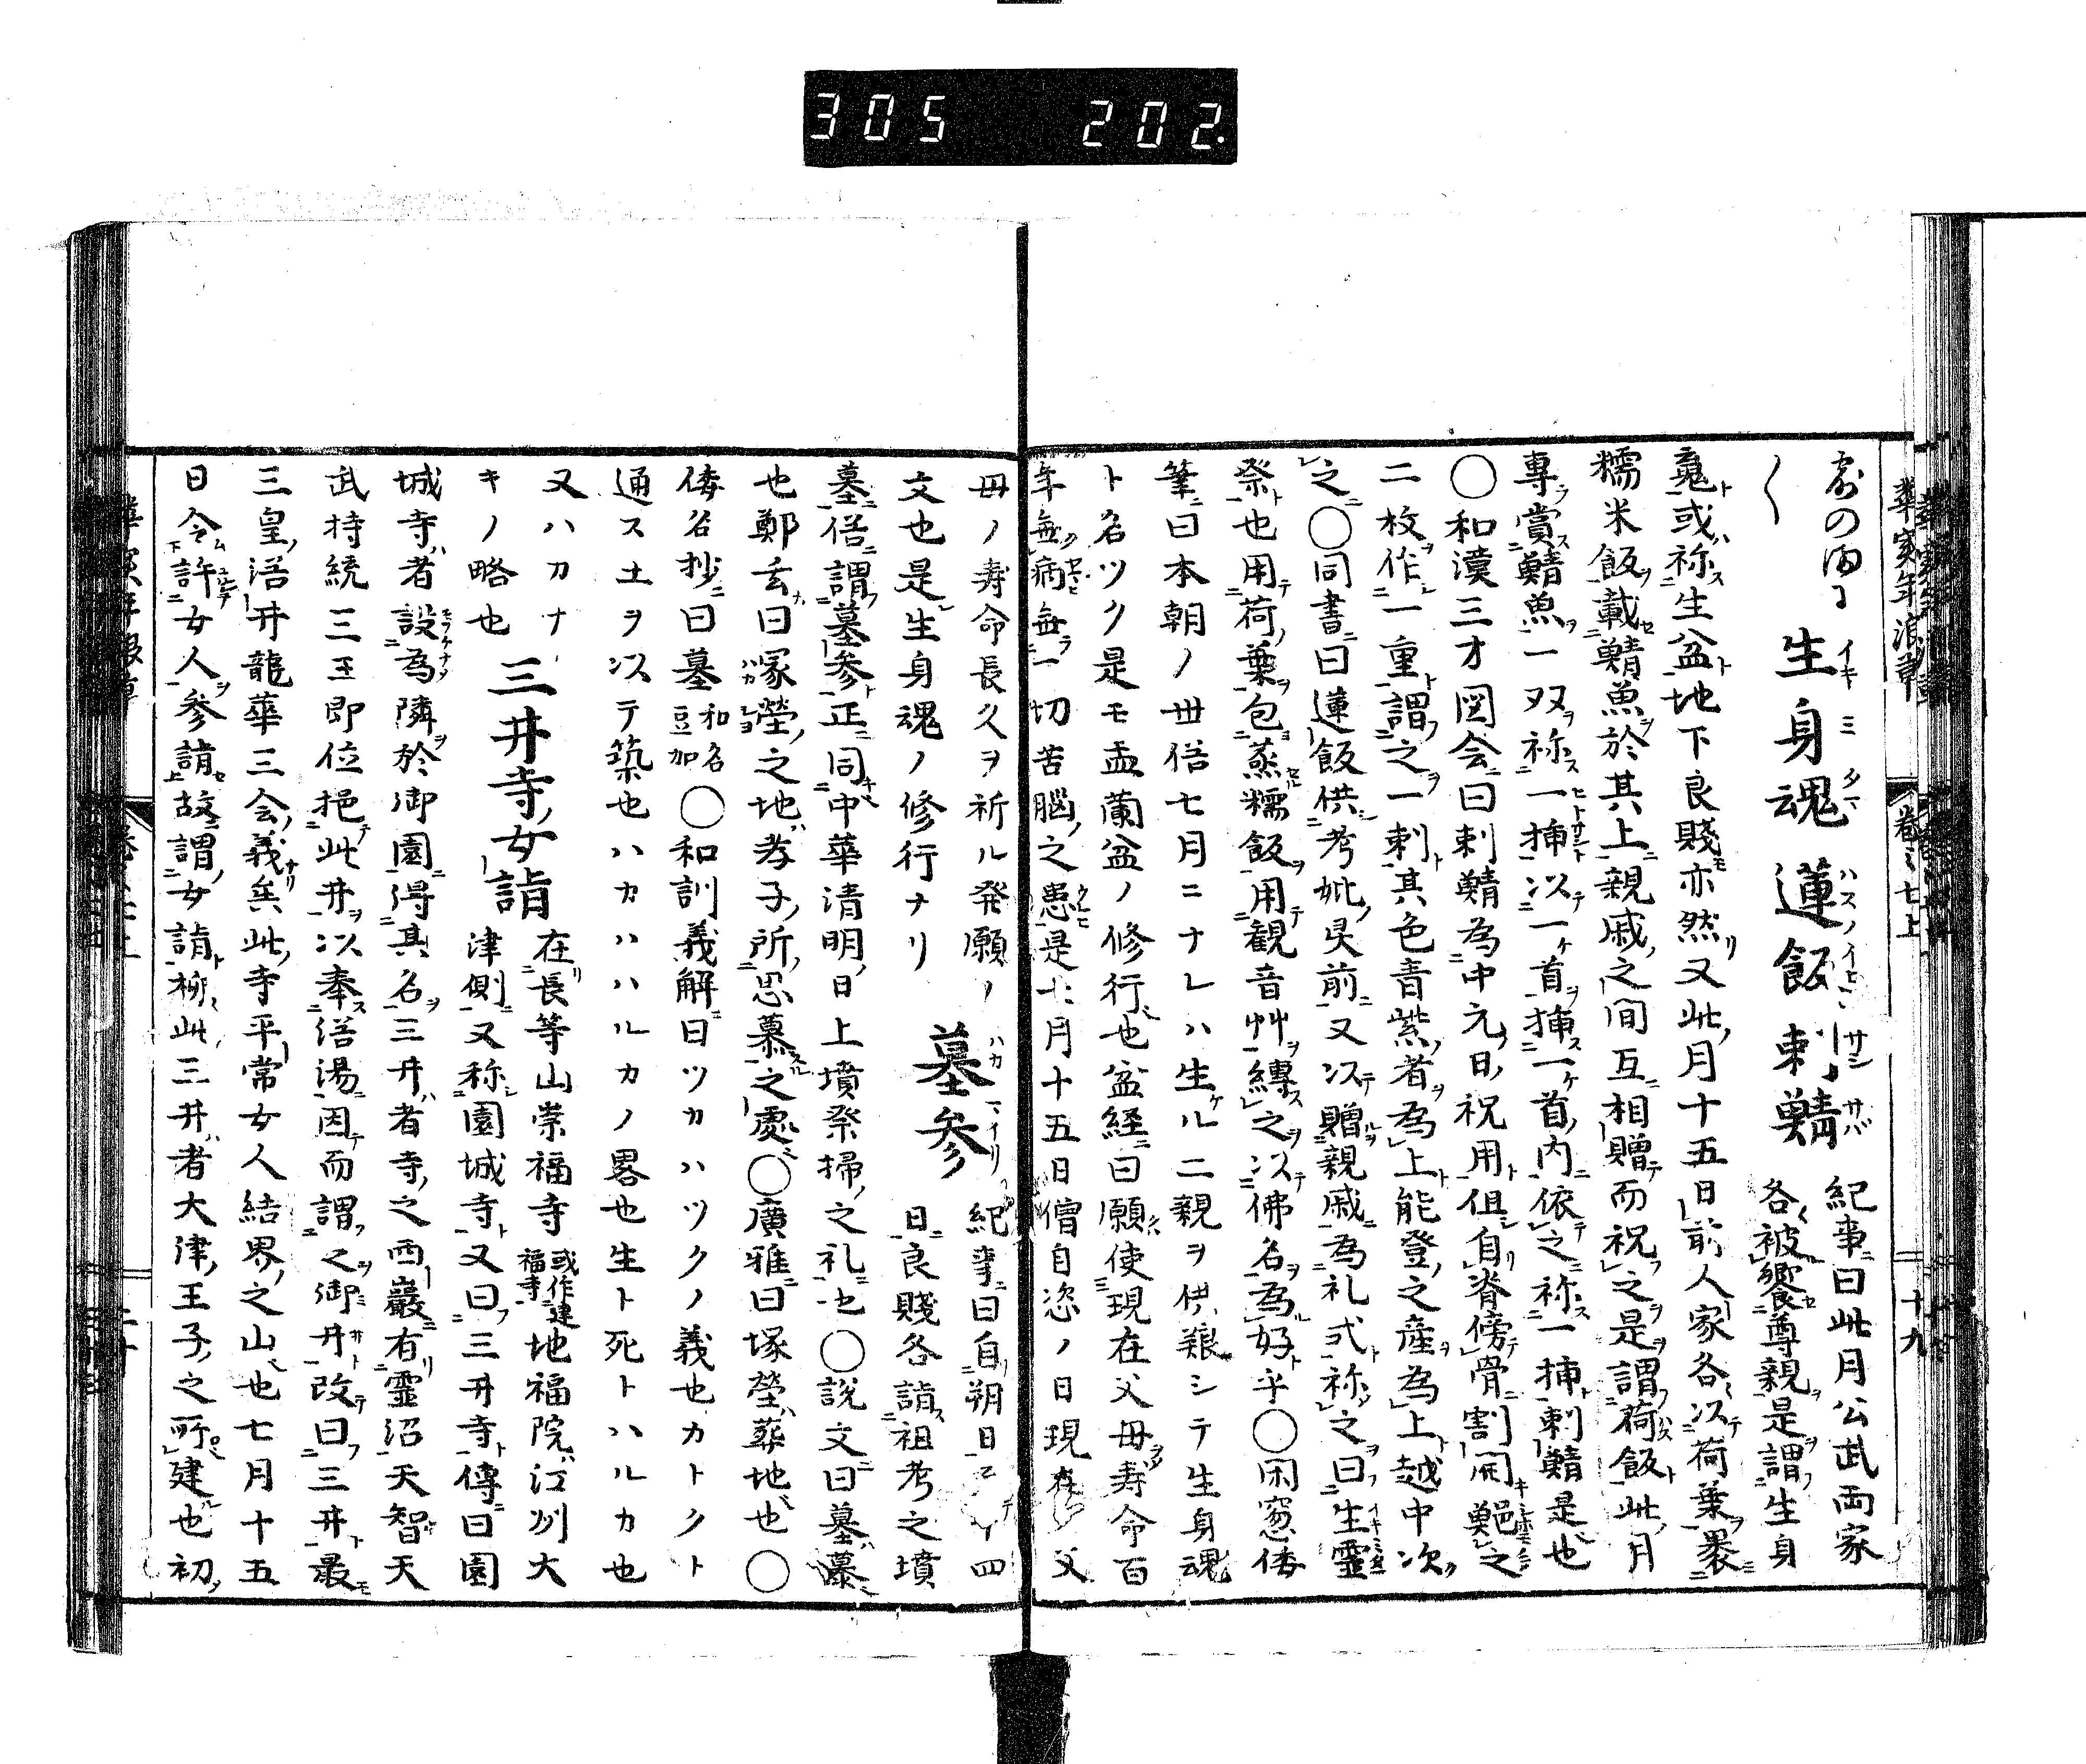 305 202.
華実年浪草 巻之七上 十九
生身魂 蓮飯 刺鯖 紀事曰此月公武両家
各被饗尊親是謂生身
魂或称生盆地下良賤亦然又此月十五日前人家各以荷葉裹
糯米飯載鯖魚於其上親戚之間互相贈而祝之是謂荷飯此月
専賞鯖魚一双称一挿以一首挿一首内依之称一挿刺鯖是也
〇和漢三才図会曰刺鯖為中元日祝用但自脊傍骨割開醃之
二枚作一重謂之一刺其色青紫者為上能登之産為上越中次
之〇同書曰蓮飯供考妣灵前又以贈親戚為礼式称之曰生霊
祭也用荷葉包蒸糯飯用観音艸縳之以佛名為好乎〇閑窓倭
筆曰本朝ノ世俗七月ニナレハ生ル二親ヲ供粮シテ生身魂
ト名ツク是モ盂蘭盆ノ修行也盆経曰願使現在父母寿命百
年無病無一切苦脳之患是七月十五日僧自恣ノ日現在父
母ノ寿命長久ヲ祈ル発願ノ
文也是生身魂ノ修行ナリ 墓参 紀事曰自朔日 十四
日良賤各詣祖考之墳
墓俗謂墓参正同中華清明日上墳祭掃之礼也〇説文曰墓
也鄭玄曰冢塋之地孝子所思慕之處〇廣雅曰塚塋葬地也〇
倭名抄曰墓和名豆加〇和訓義解曰ツカハツクノ義也カトクト
通ス土ヲ以テ築也ハカハハルカノ畧也生ト死トハルカ也
又ハカナ
キノ略也 三井寺女詣 在長等山崇福寺或作建福寺地福院江州大
津側又称園城寺又曰三井寺傳曰園
城寺者設為隣於御園得其名三井者寺之西巖有霊沼天智天
武持統三王即位挹此井以奉浴湯因而謂之御井改曰三井最
三皇浴井龍華三会義矣此寺平常女人結界之山也七月十五
日令許女人参詣故謂女詣柳此三井者大津王子之所建也初